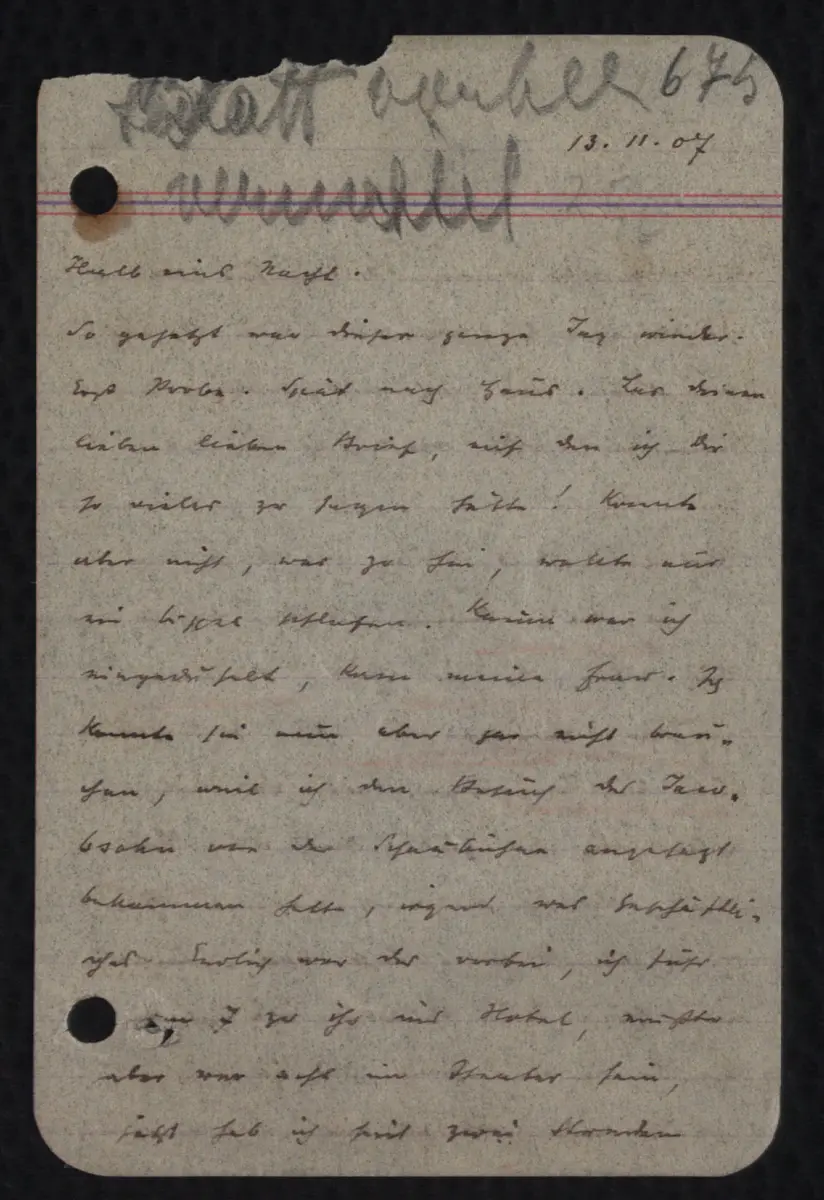 675
13. 11. 07
Halb eins Nacht.
So gehetzt war dieser ganze Tag wieder.
Erst Probe. Spät nach Haus. Las deinen
lieben lieben Brief, auf den ich dir
so vieles zu sagen hätte! Konnte
aber nicht, war zu hin, wollte nur
ein bissel schlafen. Kaum war ich
eingeduselt, kam meine Frau. Ich
konnte sie nun aber gar nicht brau-
chen, weil ich den Besuch des Jaco-
bsohn von der Schaubühne angesagt
bekommen hatte, irgend was Geschäftli-
ches. Endlich war der vorbei, ich fuhr
um 7 zu ihr ins Hotel, musste
aber vor acht im Theater sein,
jetzt hab ich seit zwei Stunden